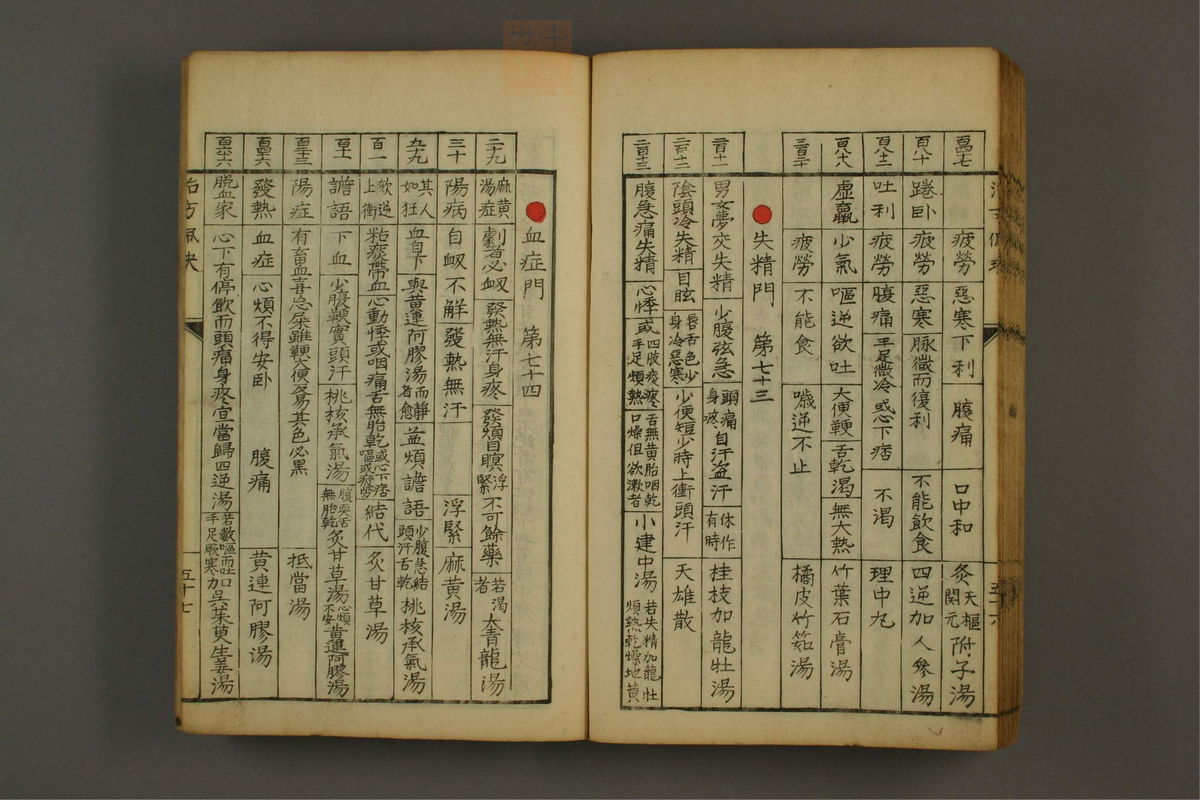 疲勞 惡寒下利 腹痛 口中和 灸天樞關元 附子湯
百八十 踡臥 疲勞 惡寒 脉微而復利 不能飲食 四逆加人參湯
吐利 疲勞 腹痛 手足微冷 或心下痞 不渴 理中丸
虛羸 少氣 嘔逆欲吐 大便鞕 舌乾渴 無大熱 竹葉石膏湯
疲勞 不能食 噦逆不止 橘皮竹茹湯
失精門 第七十三
男女夢交失精 少腹弦急 頭痛身疼 自汗盜汗 休作有時 桂枝加龍牡湯
陰頭冷失精 目眩 唇舌色少身冷惡寒 少便短少時上衝頭汗 天雄散
腹急痛失精 心悸 或四肢痠疼手足煩熱 舌無黃胎咽乾口燥但欲漱者 小建中湯 若失精加龍牡煩熱乾燥地黃
血症門 第七十四
二十九 麻黃湯症 劇者必衂 發熱無汗身疼 發煩目瞑 浮緊 不可餘藥 若渴者 大青龍湯
三十 陽病 自衂不解 發熱無汗 浮緊 麻黃湯
九十九 其人如狂 血自下 與黃連阿膠湯而靜者愈 益煩譫語 少腹急結頭汗舌乾 桃核承氣湯
百一 欬逆上衝 粘痰帶血 心動悸或咽痛舌無胎乾 或心下痞嘔或疲勞 結代 灸甘草湯
譫語 下血 少腹鞕實頭汗 桃核承氣湯 腹耎舌無胎乾 灸甘草湯 心煩不安 黃連阿膠湯
陽症 有畜血喜忘 屎雖鞕大便必易其色必黑 抵當湯
發熱 血症 心煩不得安臥 腹痛 黃連阿膠湯
脱血家 心下有停飲而頭痛身疼 宜當歸四逆湯 若數嘔而吐手足厥寒 加吳茱萸生姜湯
五十七